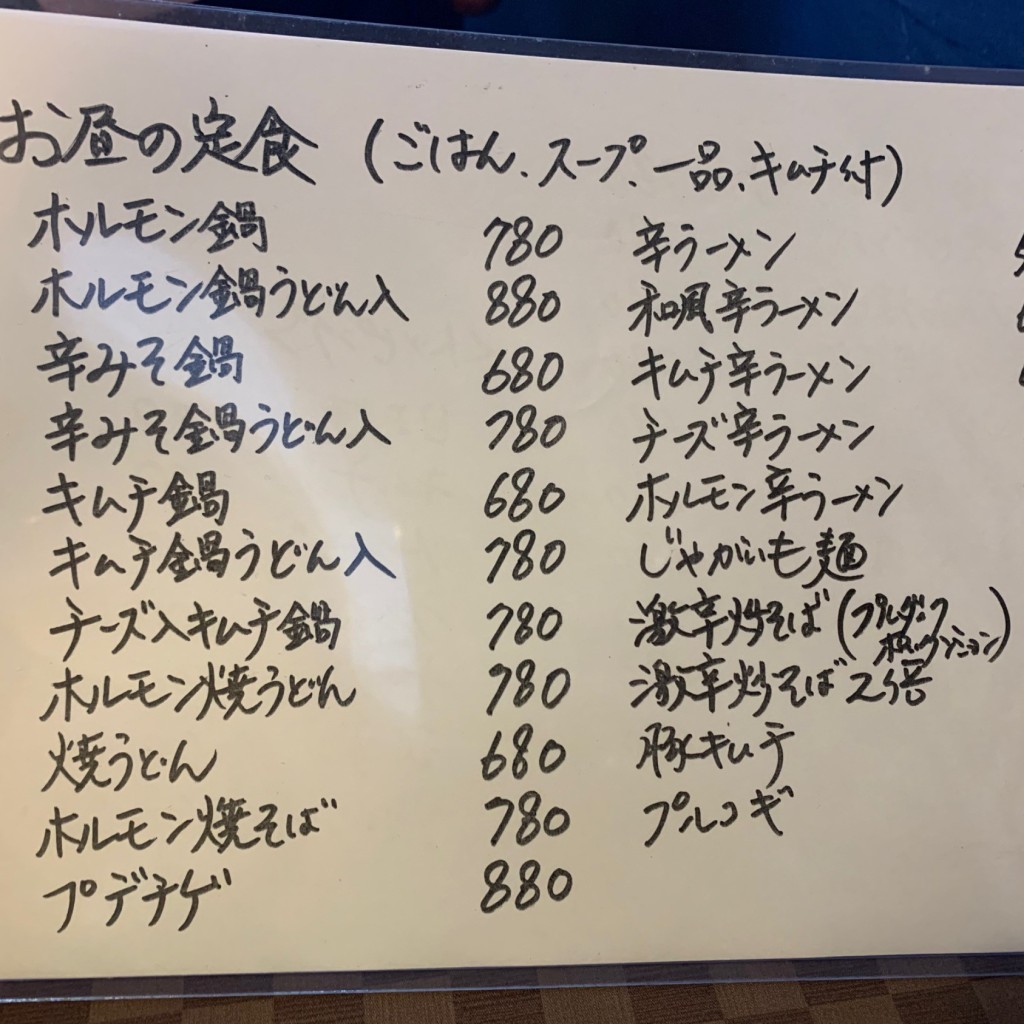 お昼の定食 (ごはん、スープ、一品、キムチ付)
ホルモン鍋 780
ホルモン鍋うどん入 880
辛みそ鍋 680
辛みそ鍋うどん入 780
キムチ鍋 680
キムチ鍋うどん入 780
チーズ入キムチ鍋 780
ホルモン焼うどん 780
焼うどん 680
ホルモン焼そば 780
プデチゲ 880
辛ラーメン
和風辛ラーメン
キムチ辛ラーメン
チーズ辛ラーメン
ホルモン辛ラーメン
じゃがいも麺
激辛炒そば (プルダック
激辛炒そば 2倍
豚キムチ
プルコギ